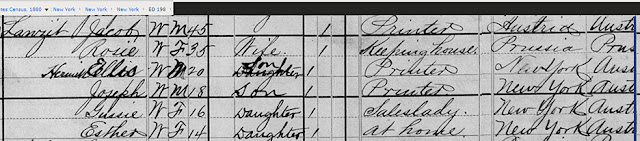 tes Census, 1880 New York New York ED 198
Lawzit Jacob W M 45 1 Printer Austria Austr
Rosie W F 35 Wife 1 Keeping house Prussia Prus
Herman Ellis W M 20 Daughter Son 1 Printer New York Aus
Joseph W M 18 Son 1 Printer New York Aus
Gussie W F 16 Daughter 1 Saleslady. New York Aust
Esther W F 14 Daughter 1 at home. New York Aust